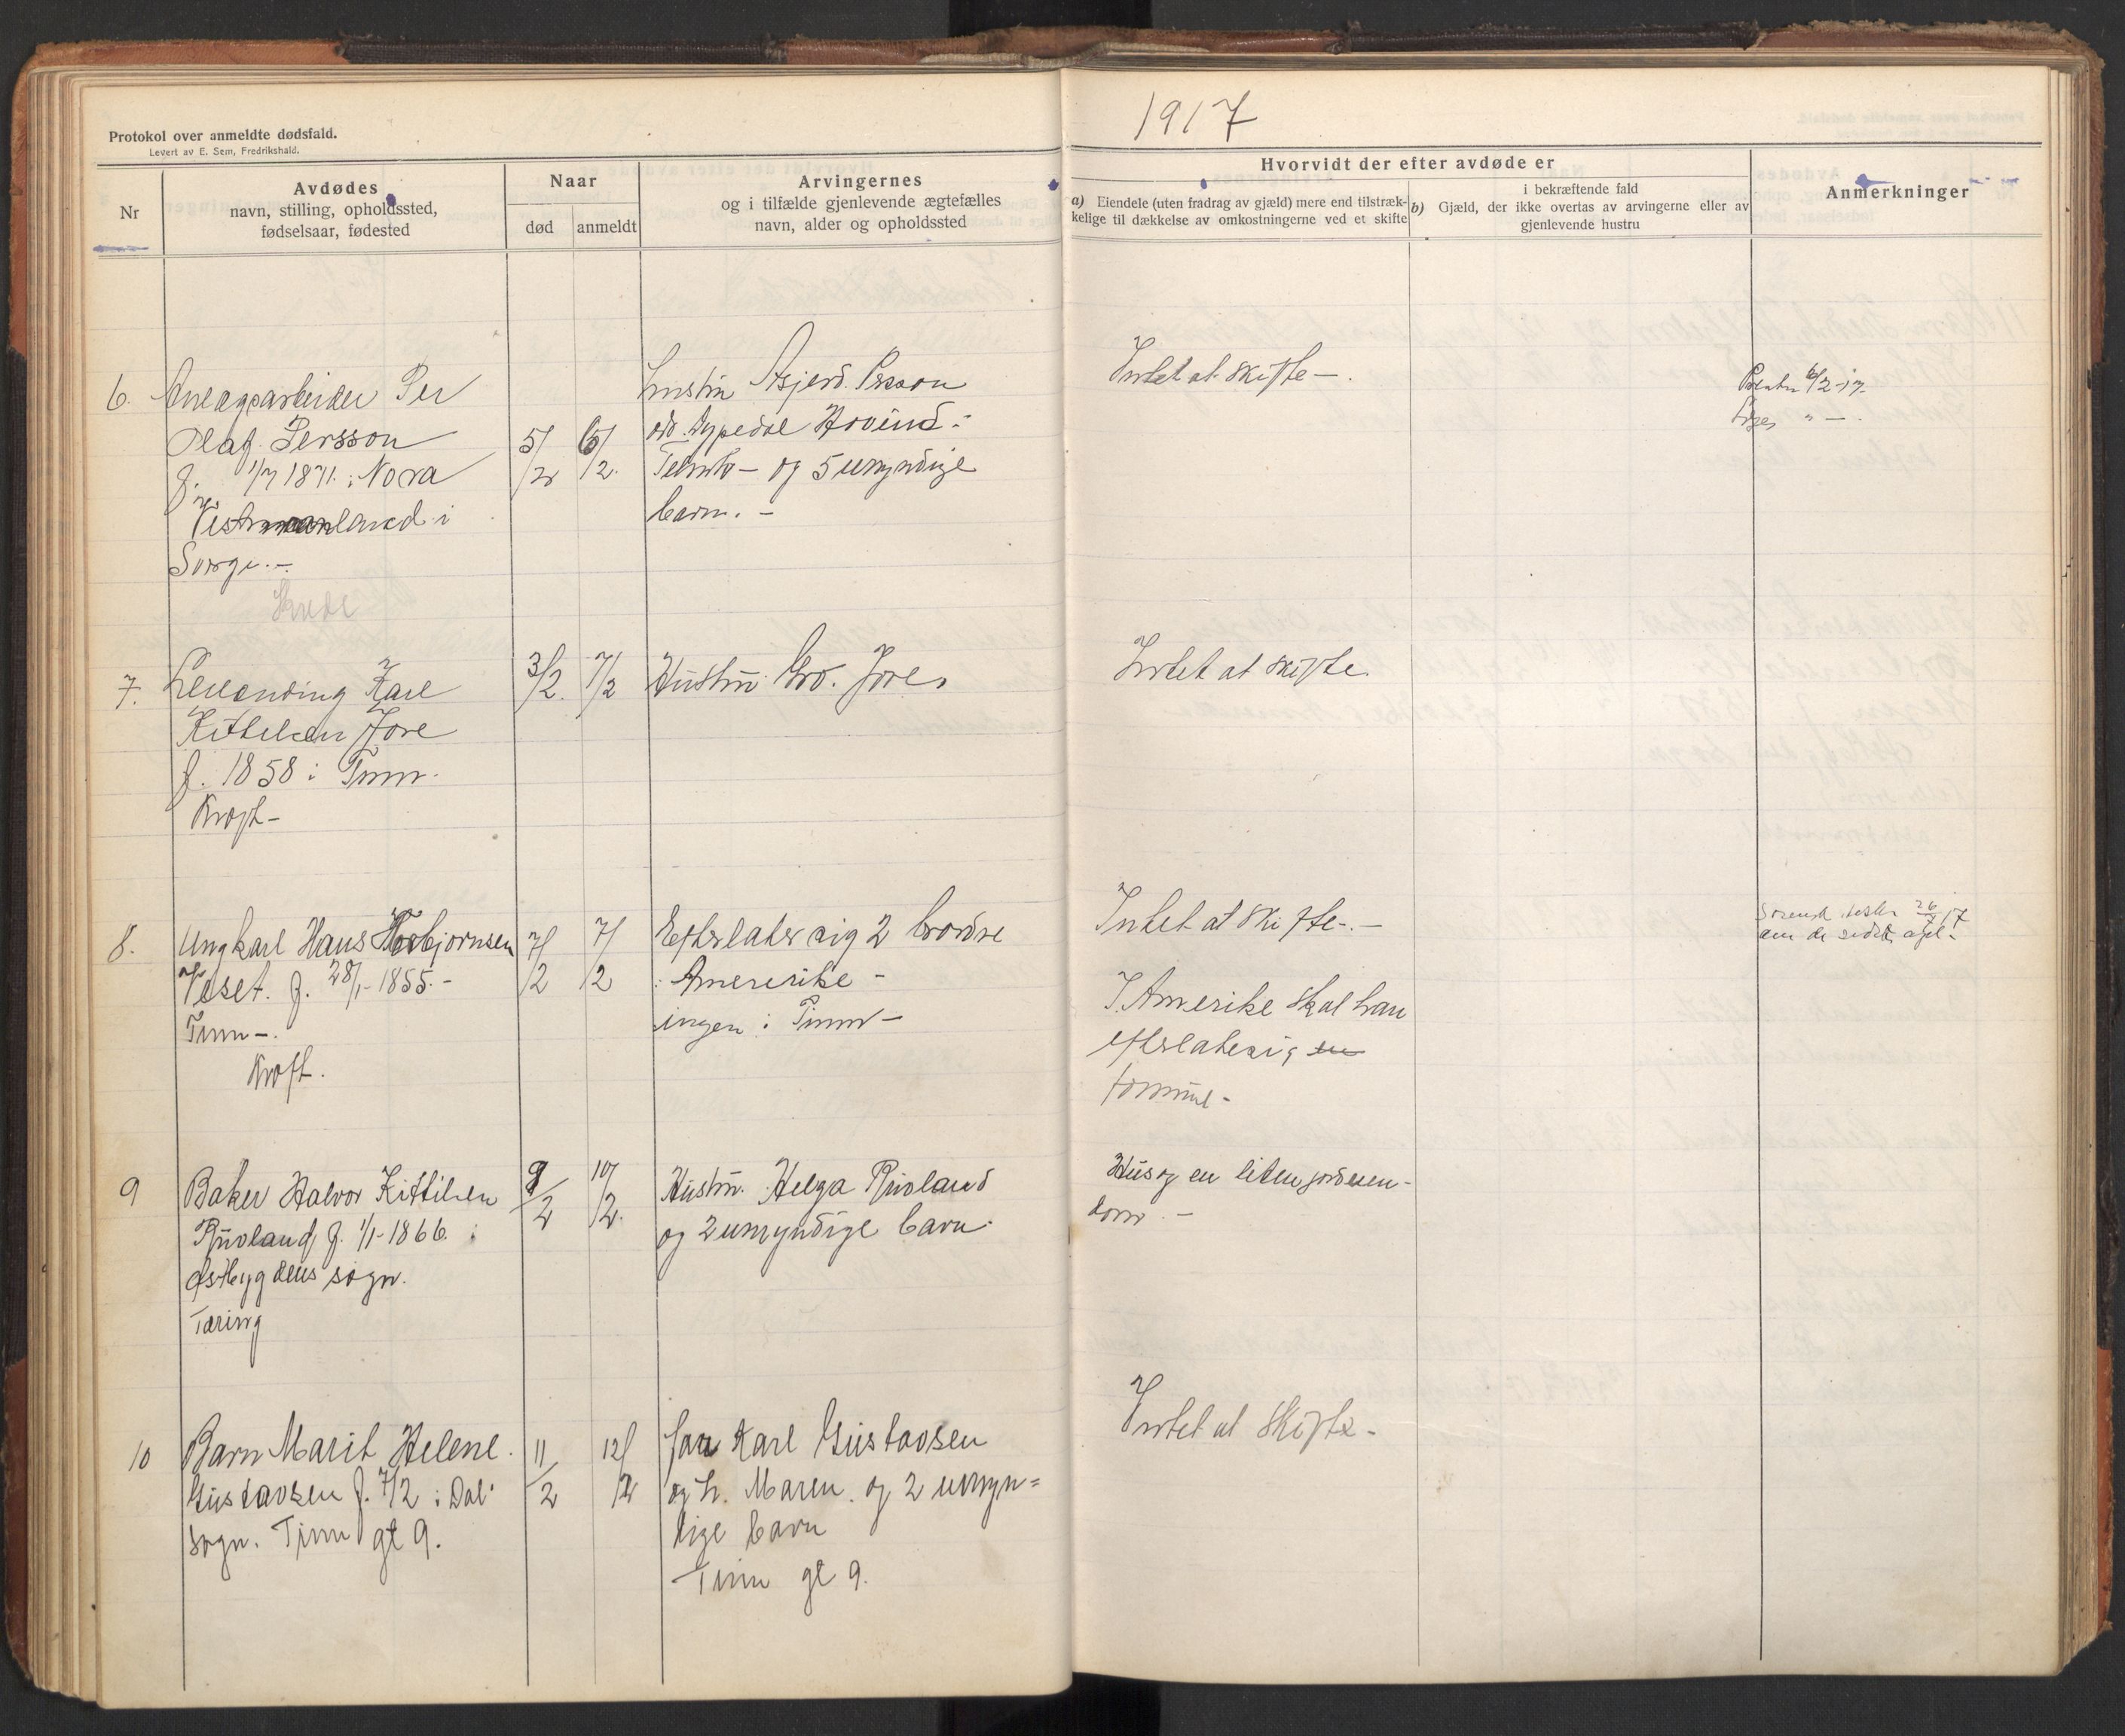 1917
Protokol over anmeldte dødsfald.
Levert av E. Sem, Fredrikshald.
Nr
Avdødes
navn, stilling, opholdssted,
fødselsaar, fødested
Naar
død
anmeldt
Arvingernes
og i tilfælde gjenlevende ægtefælles
navn, alder og opholdssted
Hvorvidt der efter avdøde er
a) Eiendele (uten fradrag av gjæld) mere end tilstræk-
kelige til dækkelse av omkostningerne ved et skifte
i bekræftende fald
b) Gjæld, der ikke overtas av arvingerne eller av
gjenlevende hustru
Anmerkninger
6. Anlægsarbeider Per
Olaf Persson
f. 1/7 1871 i Nora
Vestmanland i
Sverge.-
5/2
6/2.
hustru Persson
Hovind
og 5 umyndige
barn. -
Intet at skifte -.
6/2-17
7. Karl
Kittelsen Jore
f. 1858 i Tinn.
Kræft-
3/2.
7/2
Hustru Gro. Jore
Intet at skifte
8. Ungkarl Hans Torbjørnsen
Veset. f. 28/1-1855.-
Tinn-.
Kræft.
7/2
7/2
Efterlater sig 2 brødre
i Amererike -
ingen i Tinn -
Intet at skifte-.-
I Amerike skal han
efterlate sig en
formue -
26/7 17
9 Baker Halvor Kittilsen
Ruoland f. 1/1-1866. i
Østbygdens sogn.
Tæring
9/2
10/2.
Hustru. Helga Rusland
og 2 umyndige barn.
Hus og en liten jordeien-
dom. -
10 Barn Marit Helene.
Gustavsen f. 7/2 i Dal
sogn. Tinn gt 9.
11/2
12/2
far Karl Gustavsen
og h. Maren. og 2 umyn=
dige barn
Tinn gt 9.
Intet at skifte -